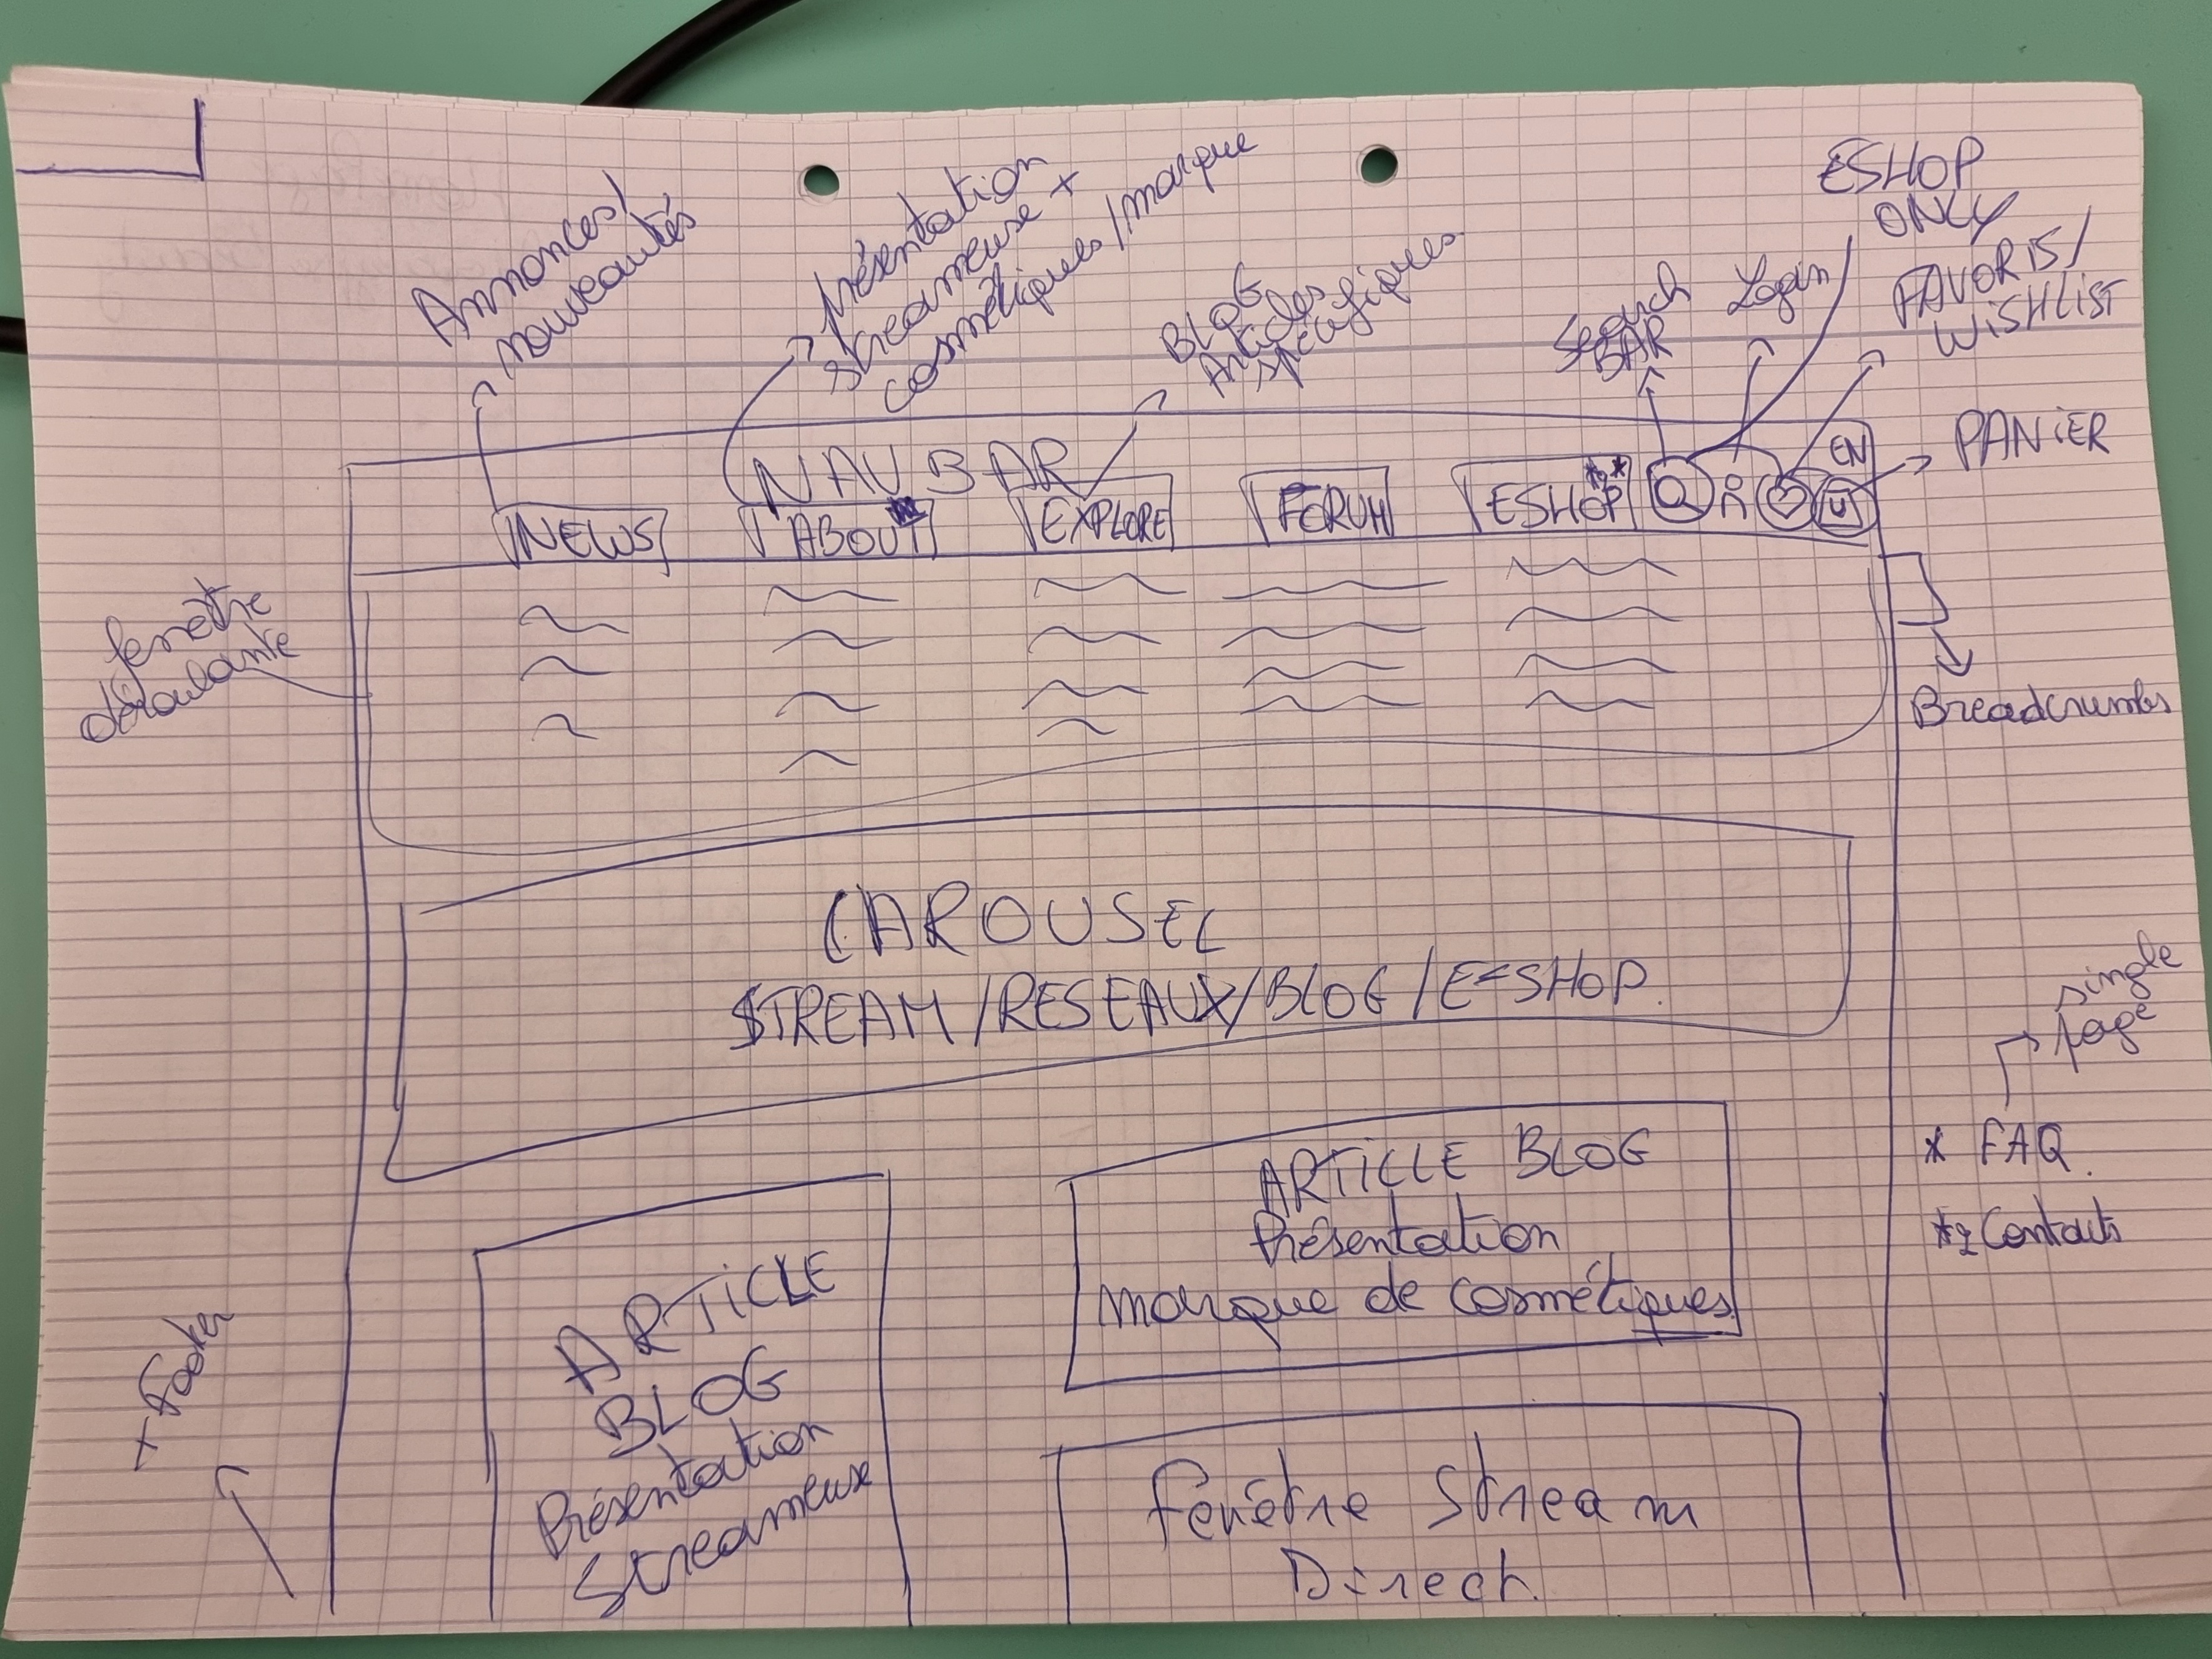 Annonces/
nouveautés
Présentation
streameuse +
cosmétiques/marque
BLOG
Articles
spécifiques
Search
BAR
Login
ESHOP
ONLY
FAVORIS/
WISHLIST
PANIER
NAV BAR
EN
NEWS
ABOUT
EXPLORE
FORUM
ESHOP **
fenêtre
déroulante
Breadcrumbs
CAROUSEL
STREAM/RESEAUX/BLOG/E-SHOP.
single
page
* FAQ.
*2 Contacts
ARTICLE BLOG
Présentation
marque de cosmétiques
ARTICLE
BLOG
Présentation
Streameuse
Fenêtre Stream
Direct.
+ Footer